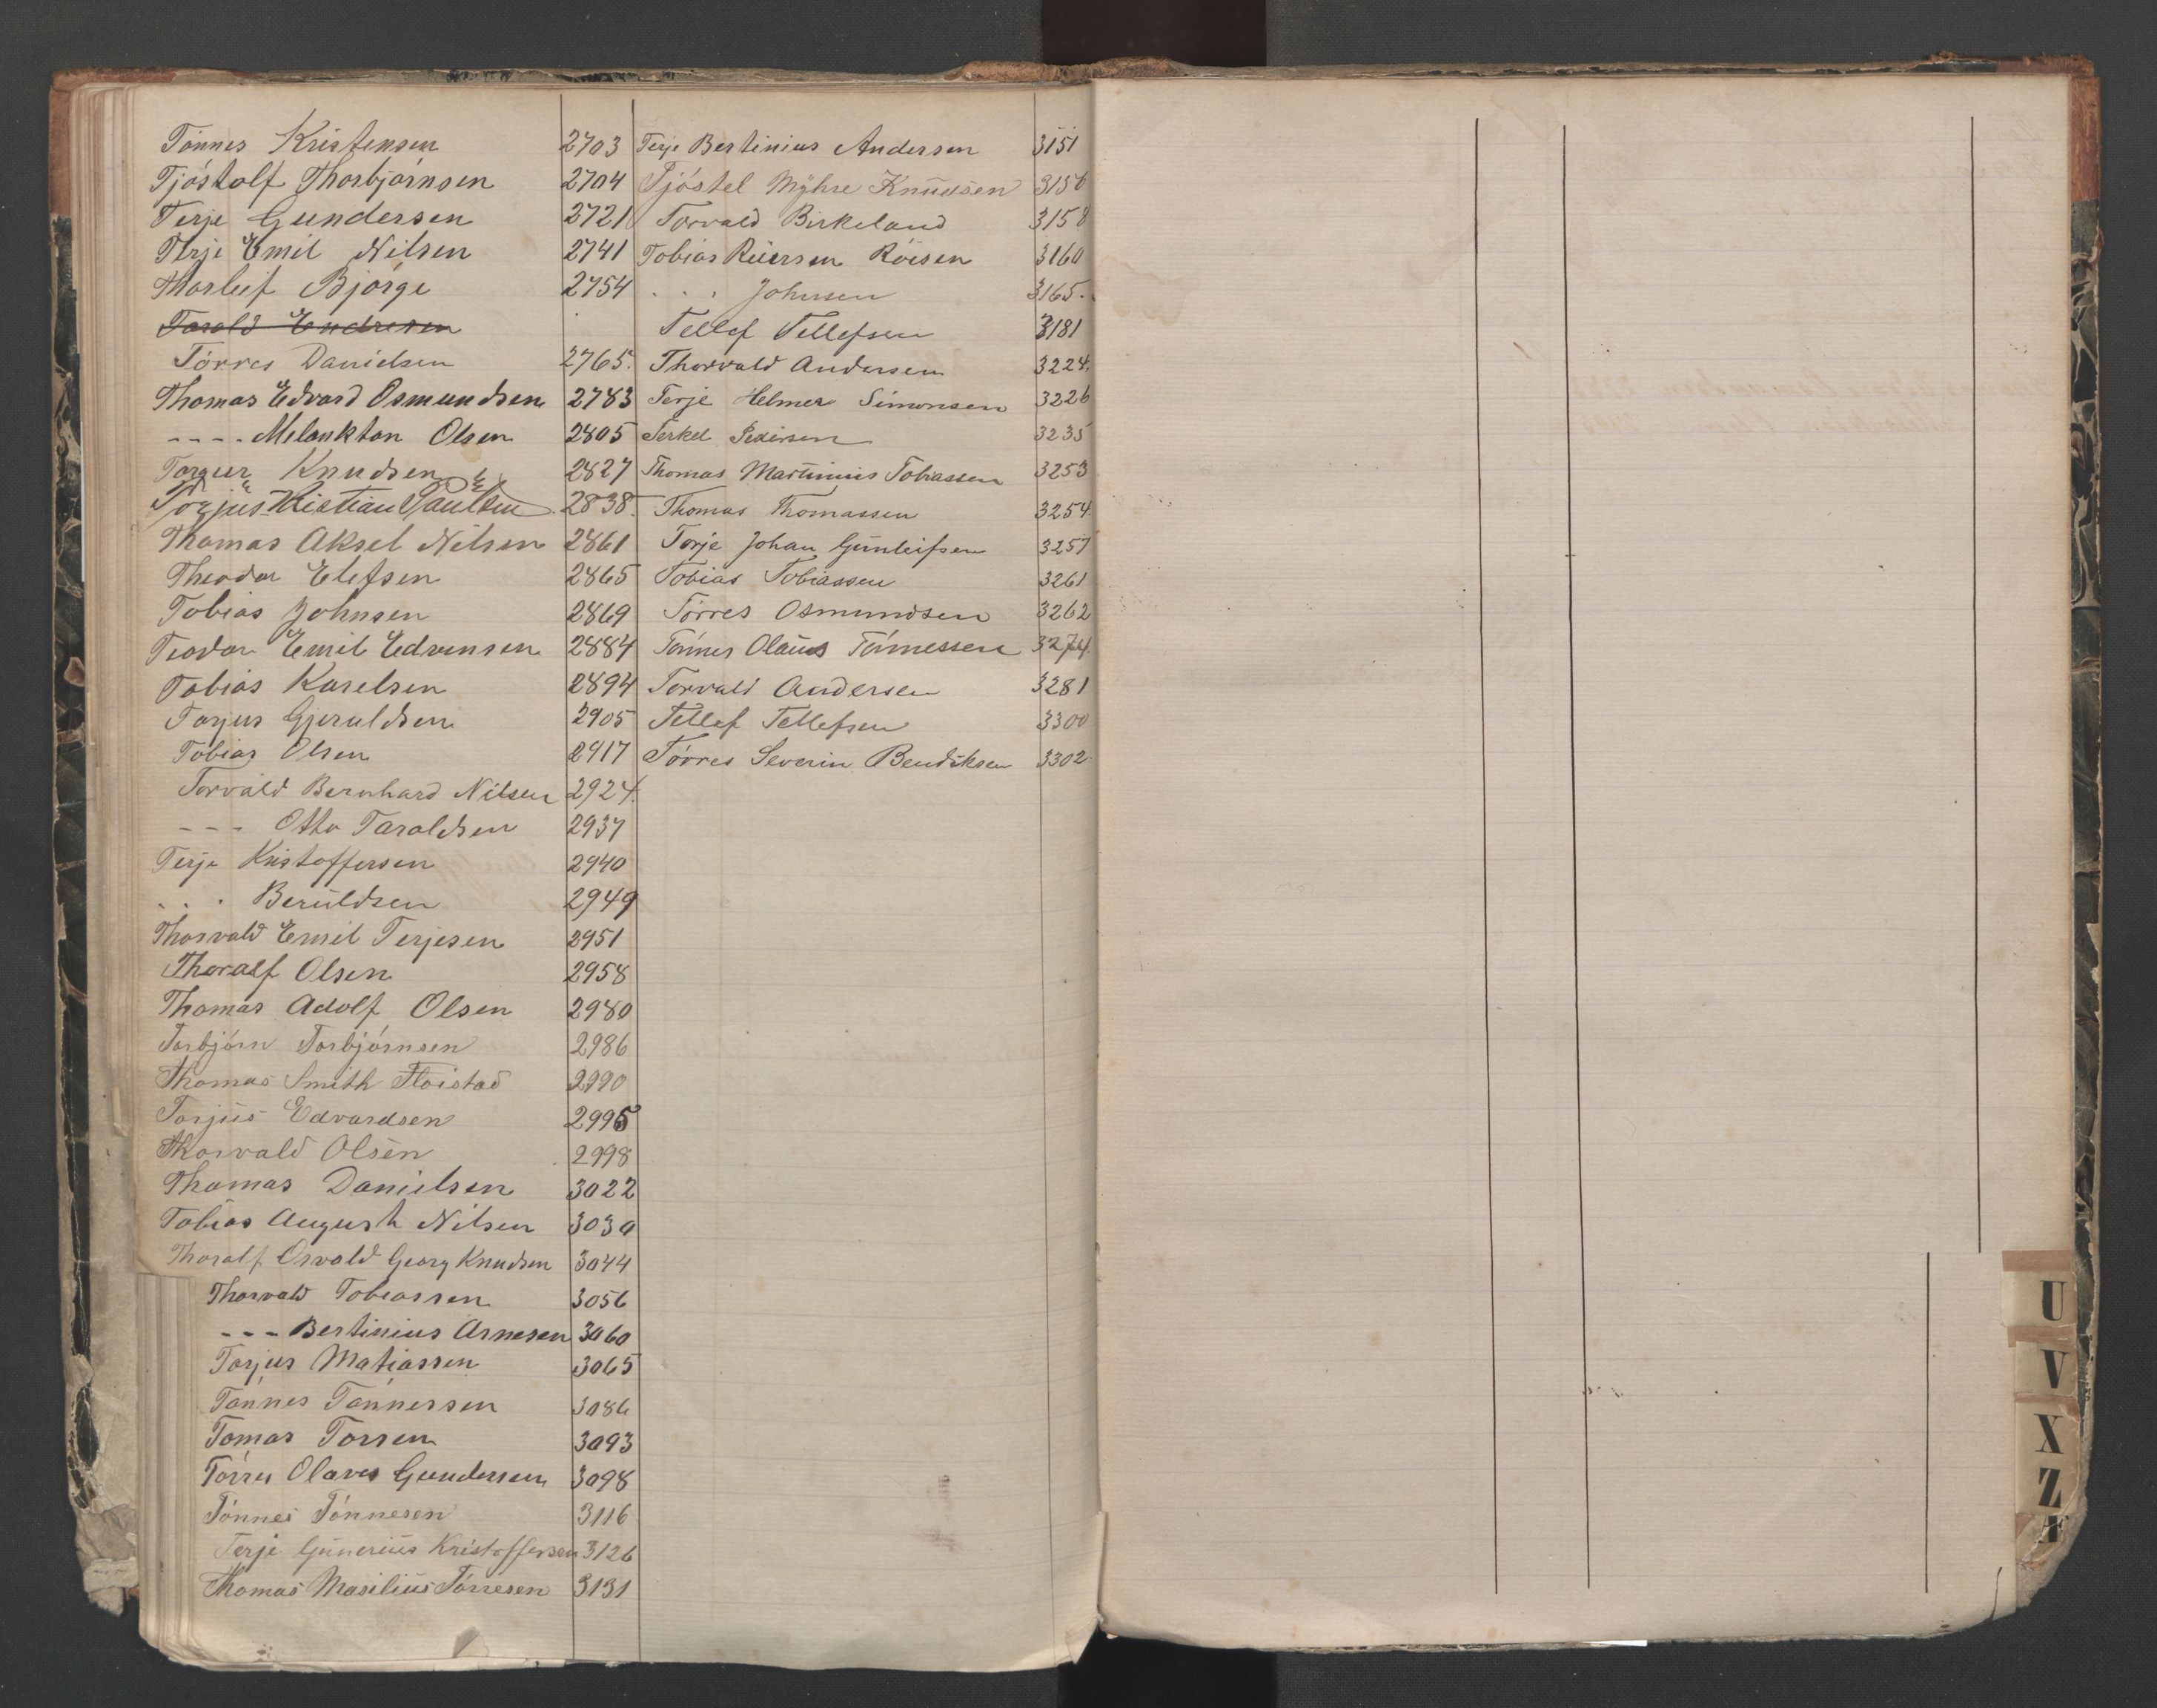 Tönnes Kristensen 2703
Tjöstolf Thorbjörnsen 2704
Terje Gundersen 2721
Terje Emil Nilsen 2741
Thorleif Bjorge 2754
Tarald Endresen
Törres Danielsen 2765.
Thomas Edvard Osmundsen 2783
---- Melankton Olsen 2805
Torger Knudsen 2827
Torjus Kristian Paulsen 2838.
Thomas Aksel Nilsen 2861
Theodor Elefsen 2865
Tobias Johnsen 2869
Teodor Emil Edvinsen 2884
Tobias Karelsen 2894
Torjus Gjeruldsen 2905
Tobias Olsen 2917
Torvald Bernhard Nilsen 2924.
--- Otto Taraldsen 2937
Terje Kristoffersen 2940
. . . Beruldsen 2949
Thorvald Emil Terjesen 2951
Thoralf Olsen 2958
Thomas Adolf Olsen 2980
Torbjörn Torbjörnsen 2986
Thomas Smith Flöistad 2990
Torjus Edvardsen 2995
Thorvald Olsen 2998
Thomas Danielsen 3022
Tobias August Nilsen 3030
Thoralf Osvald Georg Knudsen 3044
Thorvald Tobiassen 3056
--- Bertinius Arnesen 3060
Torjus Matiassen 3065
Tönnes Tönnessen 3086
Tomas Torsen 3093
Törres Olaves Gundersen 3098
Tönnes Tönnesen 3116
Terje Gunerius Kristoffersen 3126
Thomas Masilius Törresen 3131
Terje Bertinius Andersen 3151
Tjöstel Myhre Knudsen 3156
Torvald Birkeland 3158
Tobias Reiersen Röisen 3160
. . . Johnsen 3165.
Tellef Tellefsen 3181
Thorvald Andersen 3224.
Terje Helmer Simonsen 3226
Terkel Pedersen 3235
Thomas Martinius Tobiassen 3253
Thomas Thomassen 3254
Terje Johan Gunleifsen 3257
Tobias Tobiassen 3261
Törres Osmundsen 3262
Tönnes Olaus Tönnessen 3274.
Torvald Andersen 3281
Tellef Tellefsen 3300
Törres Severin Bendiksen 3302
U
V
X
Z
Æ